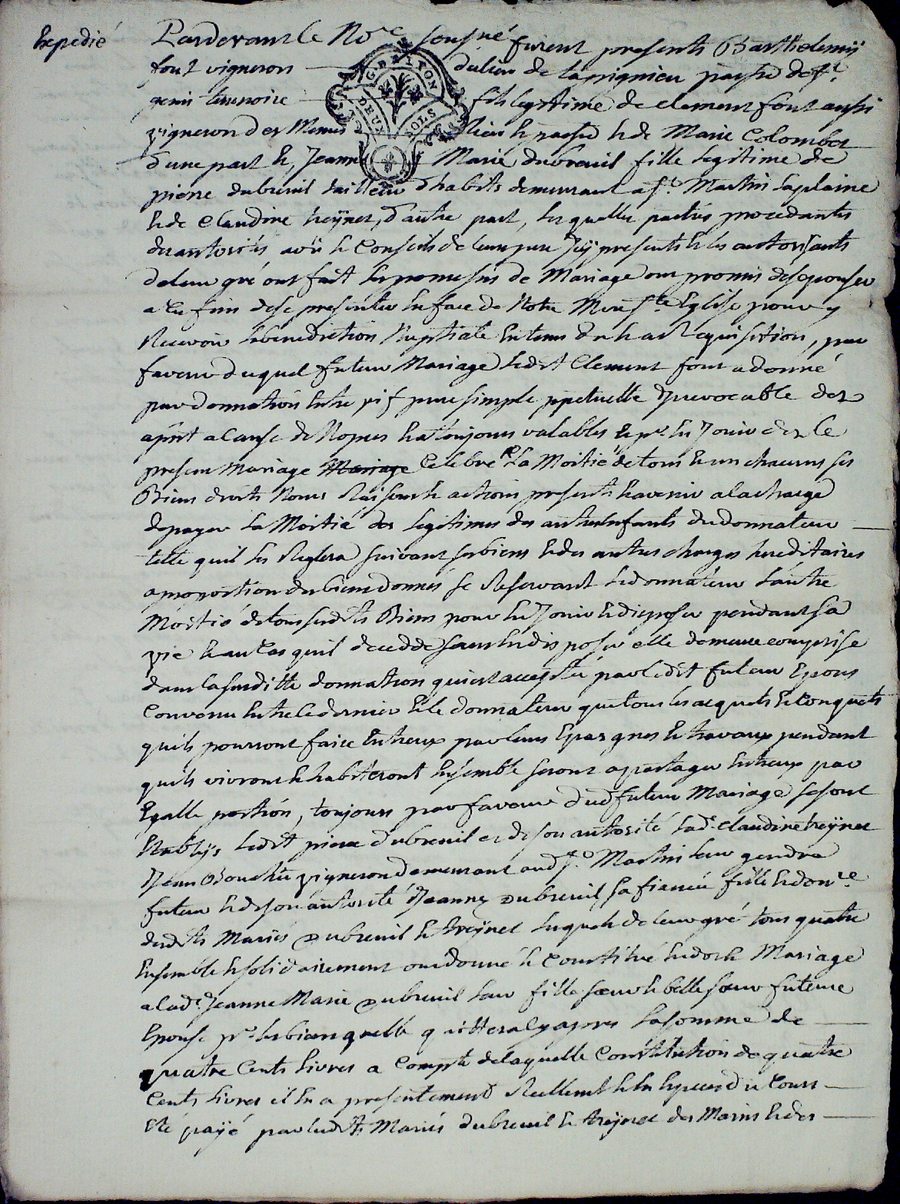 Expedié
Pardevant le No.re sousné furent presents Barthelemy
font vigneron du lieu de tapignieu parsse de St.
genis terrenoire fils legitime de clement font aussi
vigneron des Memes lieu et parsse et de Marie Colombet
d'une part et Jeanne Marie dubreuil fille legitime de
pierre dubreuil tailleur d'habits demeurant a St. Martin laplaine
et de Claudine treÿnet, d'autre part, lesquelles parties procedantes
des autorités avis et Conseils de leurs peres icy presents et les autorisants
de leur gré ont fait les promesses de Mariage ont promis de s'epouser
a ces fins de se presenter en face de Notre Mere Ste. Eglise pour y
Recevoir la benediction Nuptiale en tems du haut requisition, en
faveur duquel futeur Mariage ledit Clement font a donné
par donnation entre vifs pure simple perpetuelle irrevocable des
apnt a cause de Nopces et a toujours valables et pr. en Jouir des le
present mariage Mariage Celebré La Moitié de tous et un chacuns ses
Biens droits Noms Raisons et actions presents et avenir a la charge
de payer La Moitié des legitimes des autres enfants du donnateur
telle quil les Reglera suivant ses biens et des autres charges hereditaires
a proportion des biens donnés se Reservant le donnateur l'autre
Moitié de tous sesdts Biens pour en Jouir et disposer pendant sa
vie et au Cas quil decedde sans en disposer elle demeure comprise
dans la susditte donnation qui est acceptée par ledit futeur Epoux
Convenu entre ce dernier et le donnateur que tous les acquets et Conquets
quils pourront faire entreux par leurs Epargnes et travaux pendant
quils vivront et habiteront ensemble seront a partager entreux par
Egalle portion, toujours par faveur dud futeur Mariage se sont
Etablys ledit pierre dubreuil et de son autorité lad. Claudine treÿnet
Jean Bouchu vigneron demeurant aud St. Martin leur gendre
futeur et de son autorité Jeanne Dubreuil sa fiancée fille et don.re
desdts Mariés Dubreuil et treÿnet lesquels de leur gré tous quatre
Ensemble et solidairement ont donné et Constitué en dot et Mariage
a lad. Jeanne Marie Dubreuil leur fille sœur et belle sœur future
Epouse pr. les biens quelle quittera cy apres La somme de
quatre Cents livres a Compte de laquelle Constitution de quatre
Cents livres il en a presentement Reellement et en Especes du Cours
Eté payé par lesdts. Mariés dubreuil et treÿnet des Mains et des
GEN. LYON
DEUX SOLS